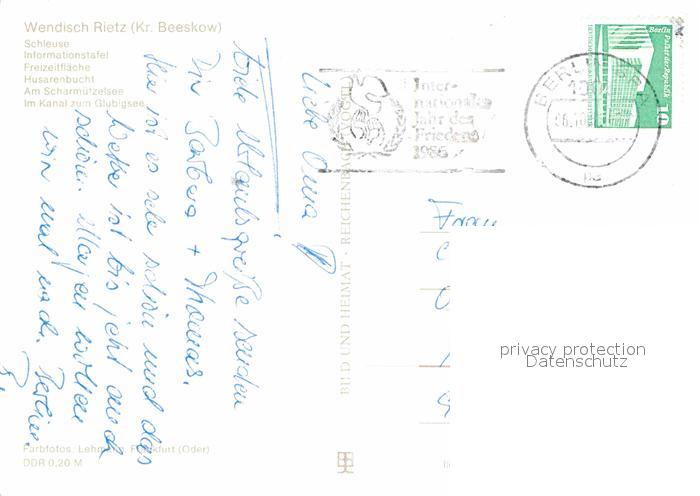 Wendisch Rietz (Kr. Beeskow)
Schleuse
Informationstafel
Freizeitfläche
Husarenbucht
Am Scharmützelsee
Im Kanal zum Glubigsee
Liebe Oma
Urlaubsgrüße senden
Dir Barbara + Thomas.
Hier ist es sehr schön und das
Wetter ist bis jetzt auch
schön. Morgen wollen
wir mal nach Berlin.
Inter-
nationales
Jahr des
Friedens
1986
BERLIN
Berlin Palast der Republik
10
BILD UND HEIMAT · REICHENBACH (VOGTL)
Frau
privacy protection
Datenschutz
Farbfotos: Lehmann, Frankfurt (Oder)
DDR 0,20 M